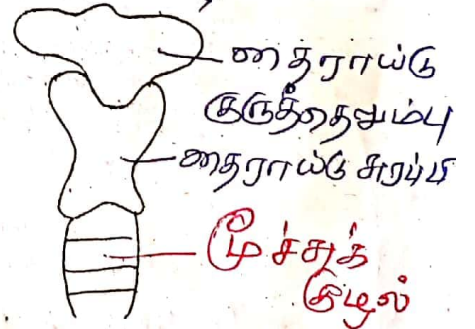 தைராய்டு
குருத்தெலும்பு
தைராய்டு சுரப்பி
மூச்சுக்
குழல்